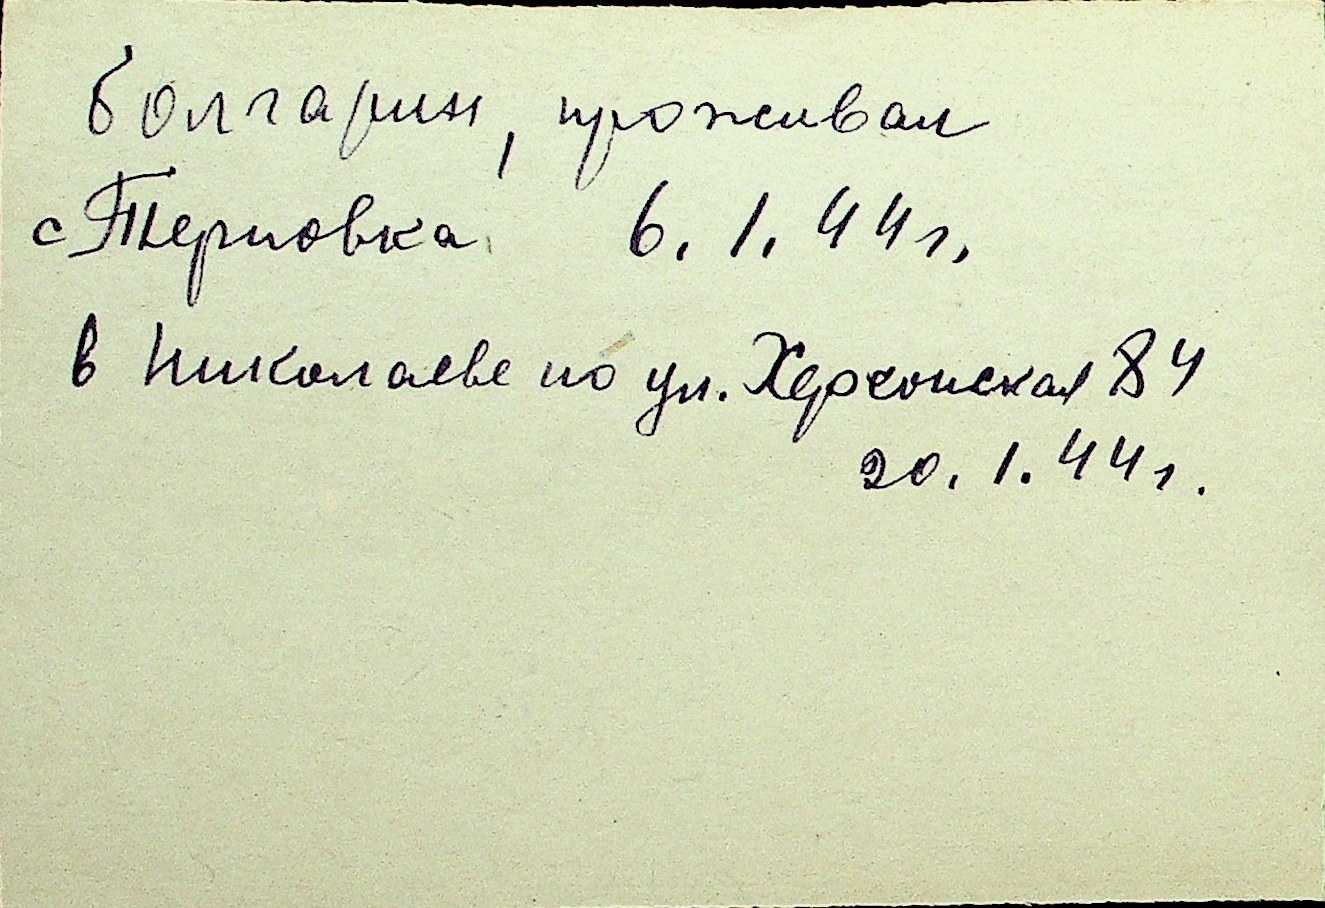 болгарин, проживал
с Терновка 6.1.44г.
в Николаеве по ул. Херсонская 84
20.1.44г.